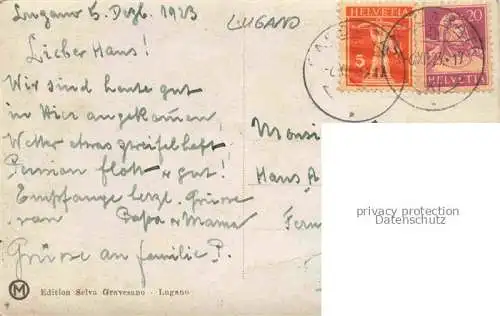 Lugano 5. Dezb. 1923
LUGANO
Lieber Hans!
Wir sind heute gut
in Hier angekommen,
Wetter etwas zweifelhaft
Pension flott & gut!
Empfange herzl. Grüsse
von Papa & Mama
Grüsse an Familie P.
HELVETIA
5
20
HELVETIA
Monsi
Hans A
Fern
privacy protection
Datenschutz
M Edition Selva Gravesano - Lugano